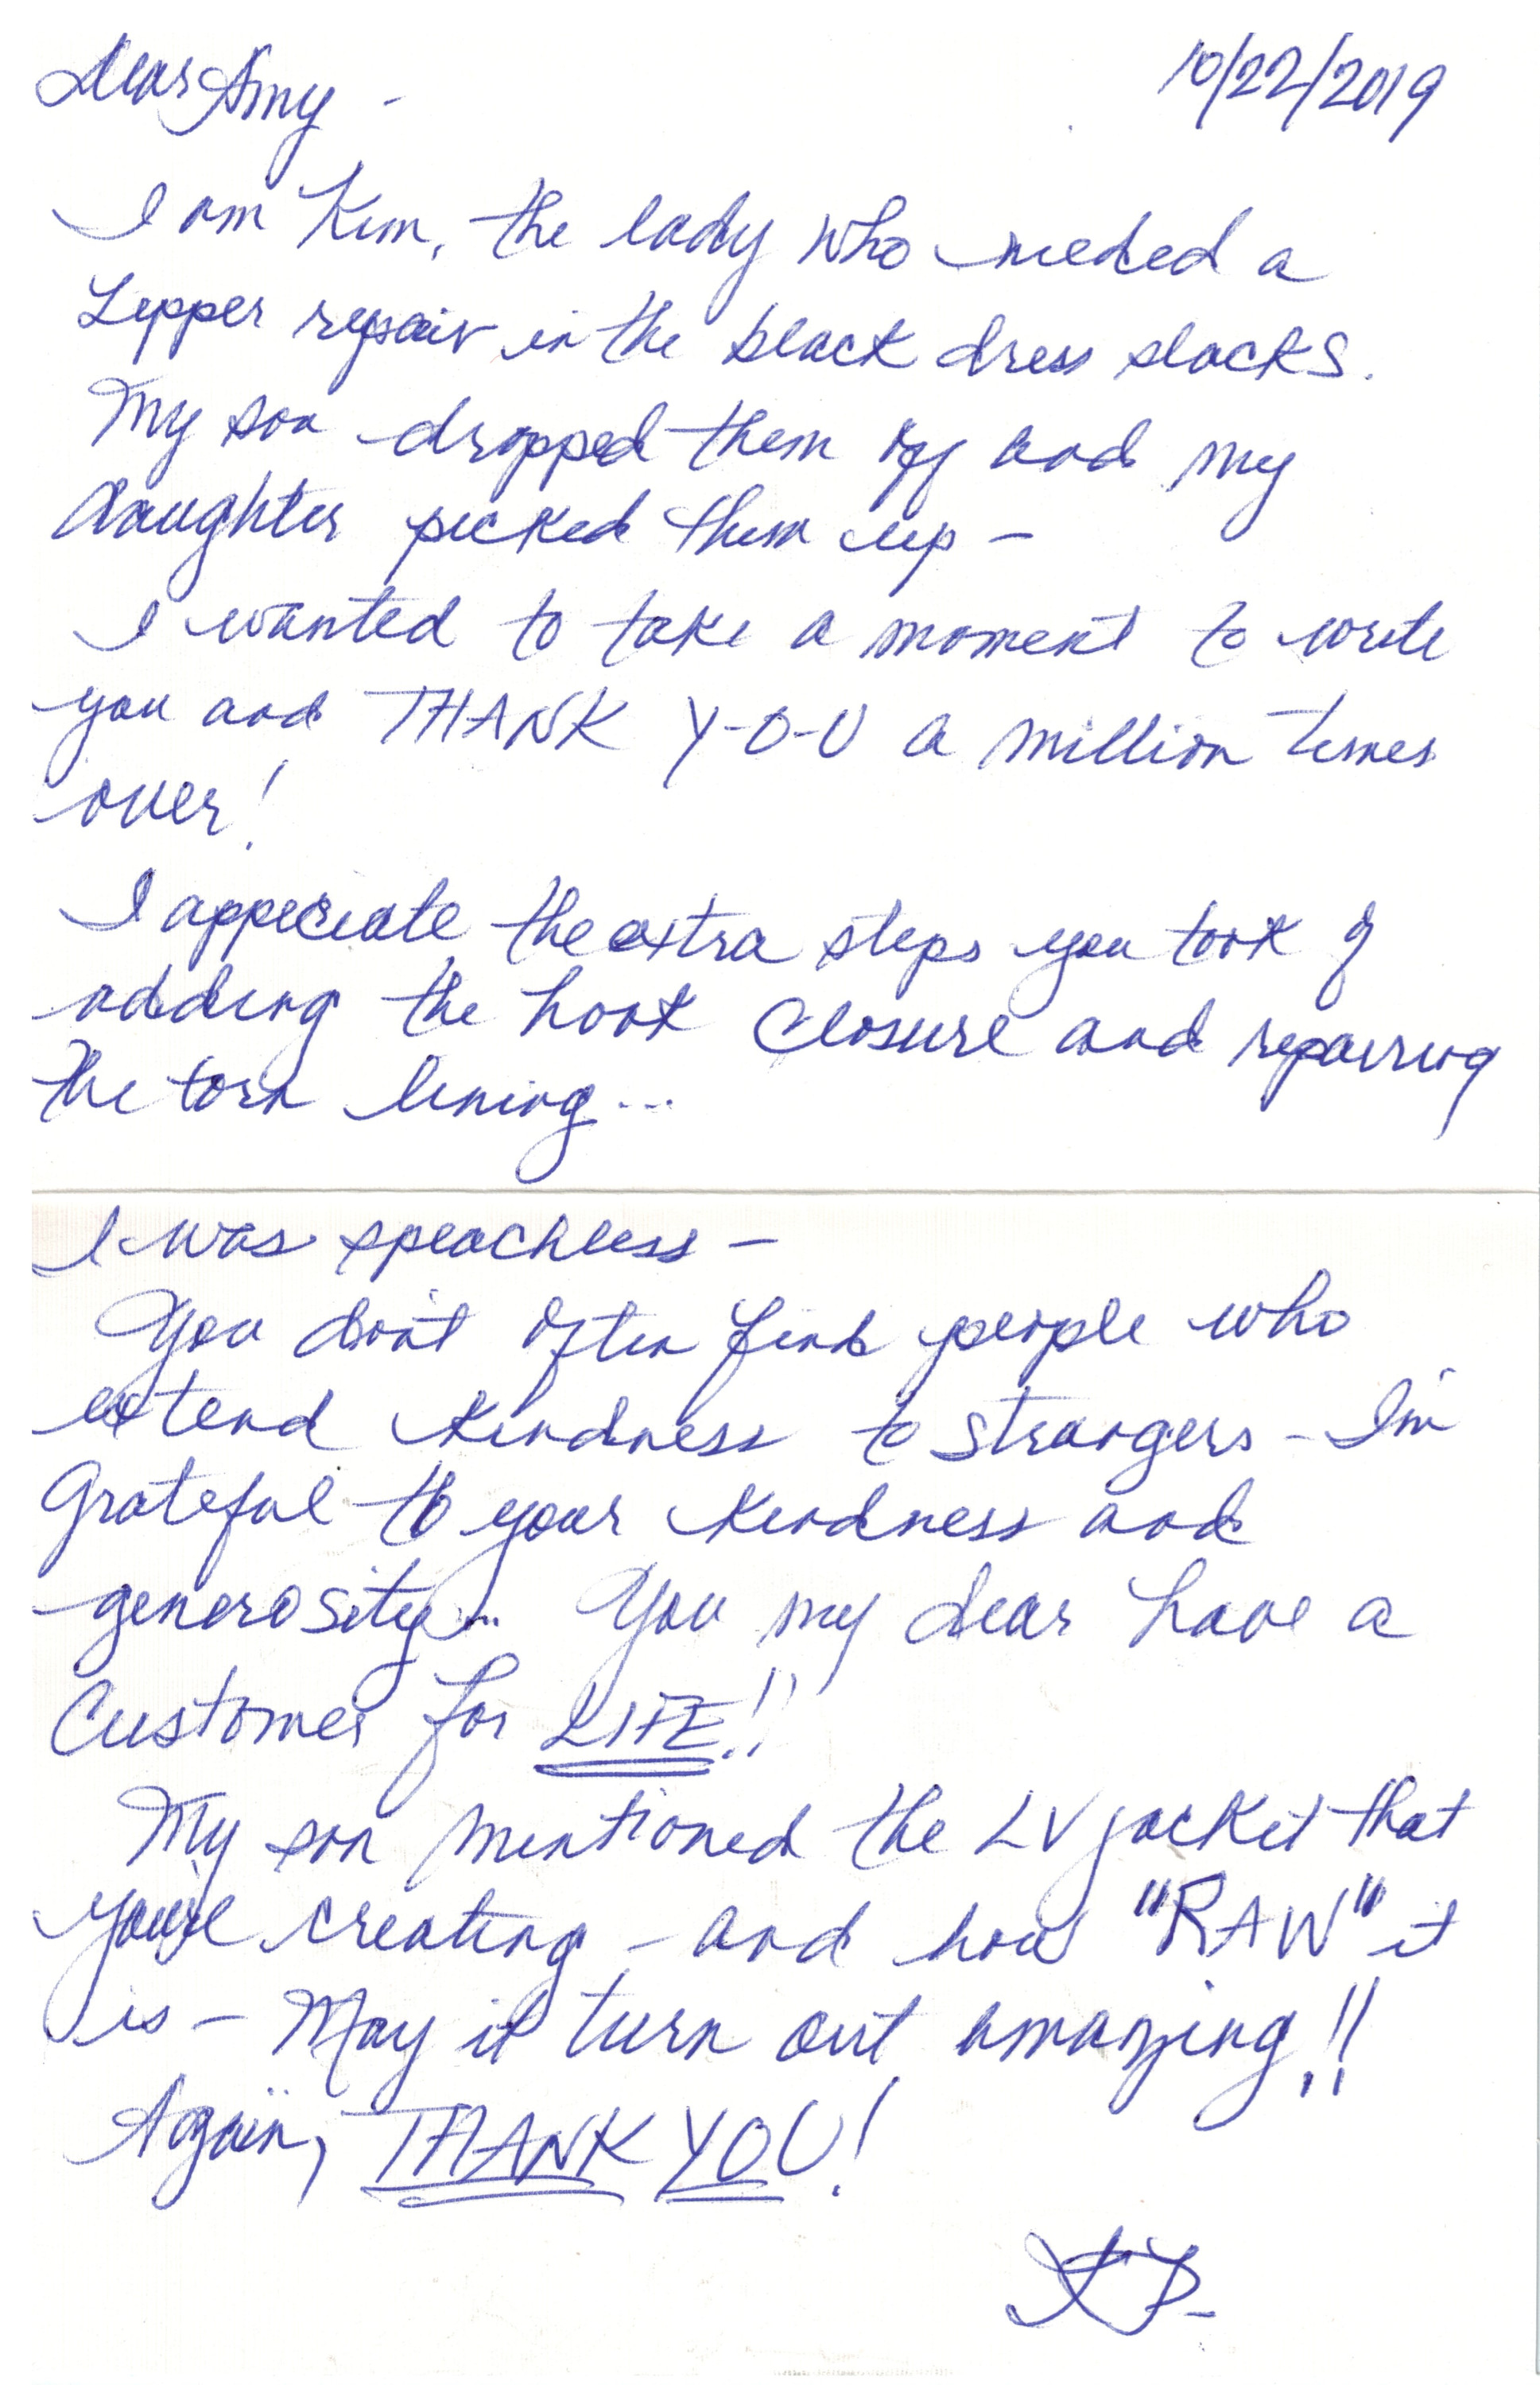 Dear Amy - 10/22/2019
I am Kim, the lady who needed a
zipper repair in the black dress slacks.
My son dropped them off and my
daughter picked them up -
I wanted to take a moment to write
you and THANK Y-O-U a million times
over!
I appeciate the extra steps you took of
adding the hook closure and repairing
the torn lining...
I was speachless -
You don't often find people who
extend kindness to strangers - I'm
grateful to your kindness and
generosity... You my dear have a
customer for LIFE!!
My son mentioned the LV jacket that
you're creating - and how "RAW" it
is - May it turn out amazing!!
Again, THANK YOU!